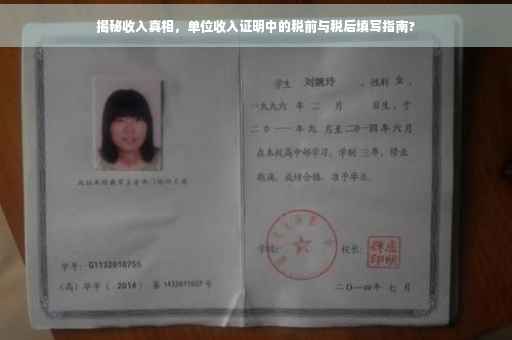 揭秘收入真相，单位收入证明中的税前与税后填写指南?
学生 刘婉玲 ，性别 女 ，
一九九六 年 二 月 日生，于
二〇一一年九 月至二〇一四年六月
在本校高中部学习，学制 三年，修业
期满，成绩合格，准予毕业。
学校： 校长：
学号：G1132010755
（高）毕字（ 2014 ）第 1432011027 号
二〇一四年 七 月